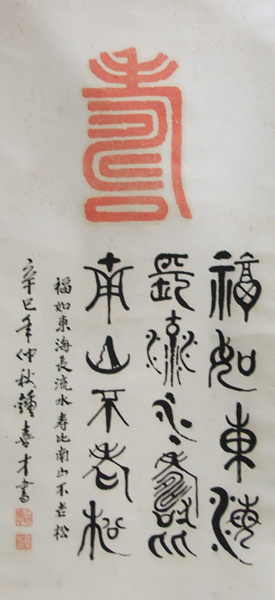 壽
福如東海
長流水壽比
南山不老松
福如東海長流水壽比南山不老松
辛巳年仲秋鐘喜才書